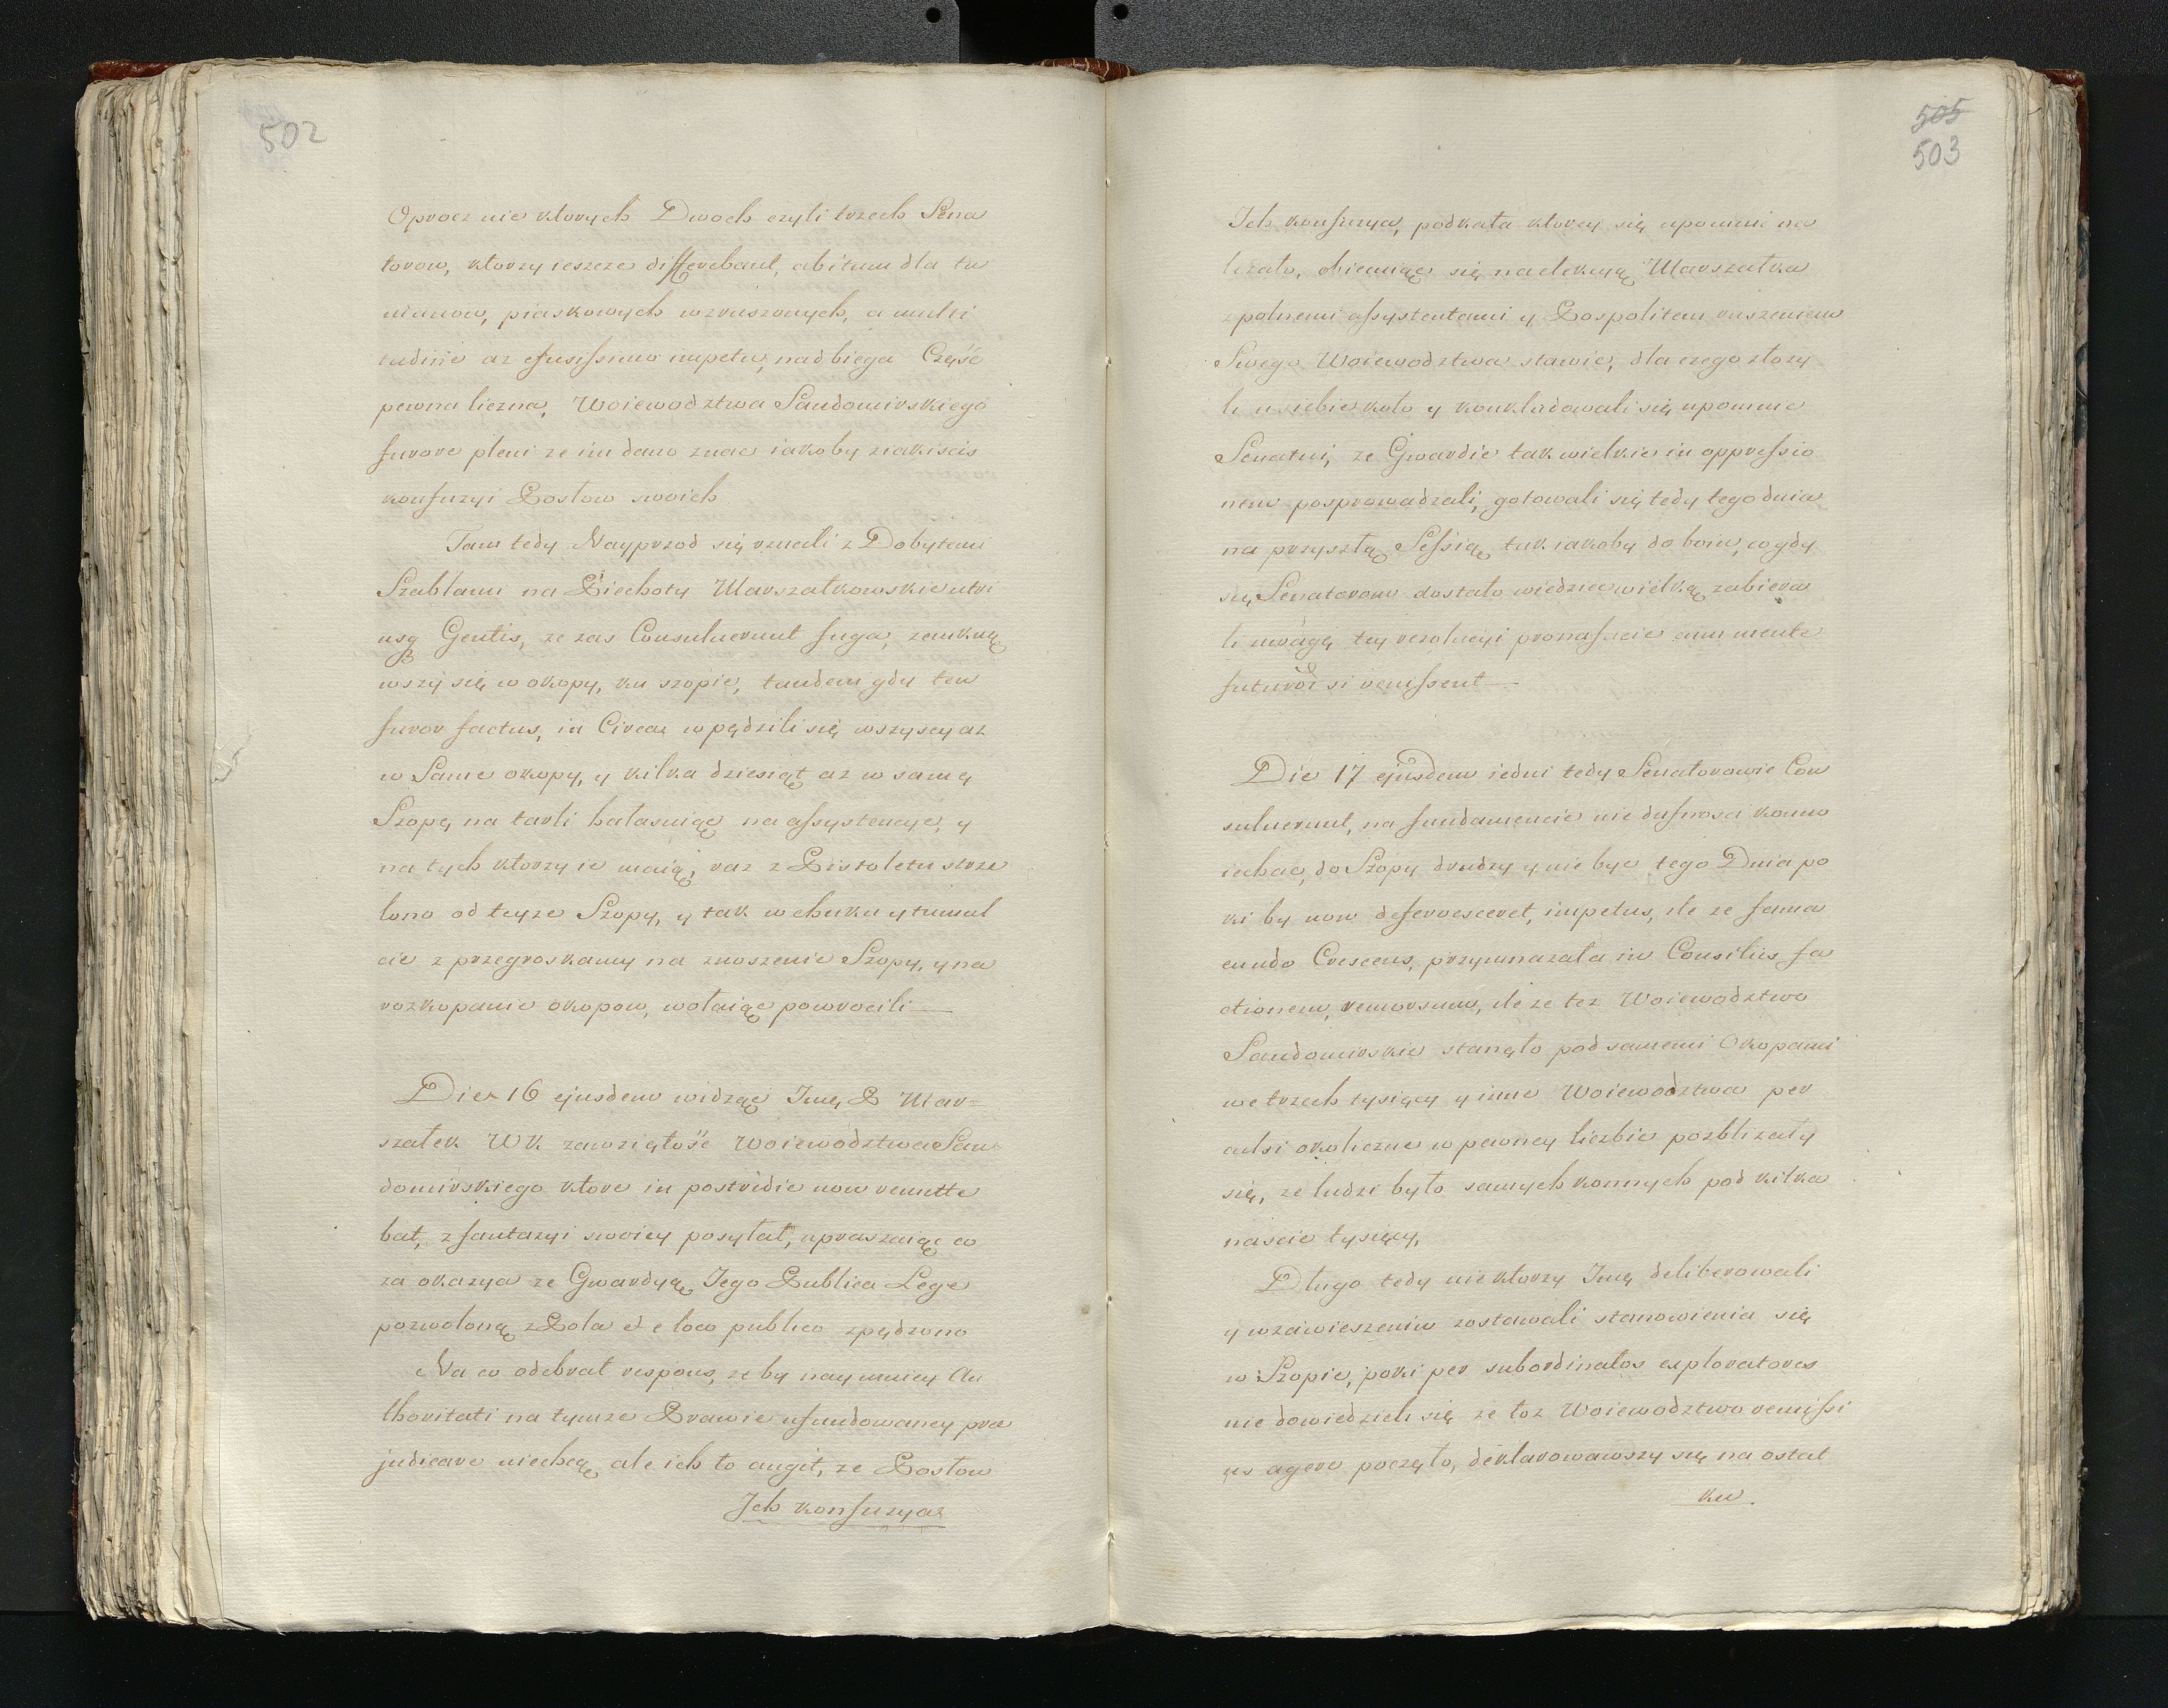 502
Oprocz nie ktorych Dwoch czyli trzech Sena
torow, ktorzy ieszcze differebant, abitum dla tu
manow, piaskowych wzruszonych, a multi
tudine az efusissimo impetu, nad biega Część
pewna liczna, Woiewodztwa Sandomirskiego
furore pleni ze im dano znac iakoby ziakiscis
konfuzyi Posłow swoich
Tam tedy Nayprzod się rznali z Dobytemi
Szablami na Piechoty Marszałkowskie utri
usq Gentis, ze zas Consuluerunt fuga, zemkną
wszy się w okopy, ku szopie, tandem gdy ten
furor factus, in Circa w pędzili się wszyscy az
w Same okopy, y kilka dziesiąt az w samą
Szopę na tarli hałasuiąc na assystencye, y
na tych ktorzy ie maią, raz z Pistoletu strze
lono od teyze Szopy, y tak w chuku y tumul
cie z przegroskamy na znoszenie Szopy, y na
rozkopanie okopow, wołaiąc powrocili —
Die 16 ejusdem widząc Jmę P Mar=
szałek WK zawziętość Woiewództwa San
domirskiego ktore in postridie non remitte
bat, z fantazyi swoiey posyłał, upraszaiąc co
za okazya ze Gwardyą Jego Publica Lege
pozwoloną z Pola et e loco publico zpędzono
Na co odebrał respons, ze by naymniey Au
thoritati na tymze Prawie ufundowaney pra
judicare niechcą ale ich to angit, ze Posłow
Jch konfuzya
505
503
Jch konfuzya, podkała ktorey się upomni na
lezało, chieniąc się na elekcyą Marszałka
z polnemi assystentami y Pospolitem ruszeniem
Swego Woiewodztwa stawić, dla czego złozy
li u siebie koło y konkludowali się upomnie
Senatui, ze Gwardie tak wielkie in oppressio
nem posprowadzali, gotowali się tedy tego dnia
na przyszłą Sessią, tak iakoby do boiu, co gdy
się Senatorom dostało wiedziec wielką zabiera
li uwagę tey rezolucyi pronafacie aim mente
futuror si venissent —
Die 17 ejusdem iedni tedy Senatorowie Con
suluerunt, na fundamencie nie dufnosci konno
iechac, do Szopy drudzy y nie byc tego Dnia po
ki by non deferuesceret, impetus, ile ze fama
eundo Crescens, przymnazała in Consiliis fa
ctionem, remorsum, ile ze tez Woiewodztwo
Sandomirskie stanęło pod samemi Okopami
we trzech tysięcy y inne Woiewodztwa per
culsi okoliczne w pewney liczbie pozblizały
się, ze ludzi było samych konnych pod kilka
nascie tysięcy,
Długo tedy nie ktorzy Jmę deliberowali
y wzawieszeniu zostawali stanowienia się
w Szopie, poki per subordinatos exploratores
nie dowiedzieli się ze toz Woiewodztwo remissi
us agere poczęło, deklarowawszy się na ostat
ku.